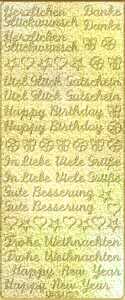 Herzlichen Danke
Glückwunsch Danke
Herzlichen
Glückwunsch
Viel Glück Gutschein
Viel Glück Gutschein
Happy Birthday
Happy Birthday
In Liebe Viele Grüße
In Liebe Viele Grüße
Gute Besserung
Gute Besserung
Frohe Weihnachten
Frohe Weihnachten
Happy New Year
Happy New Year